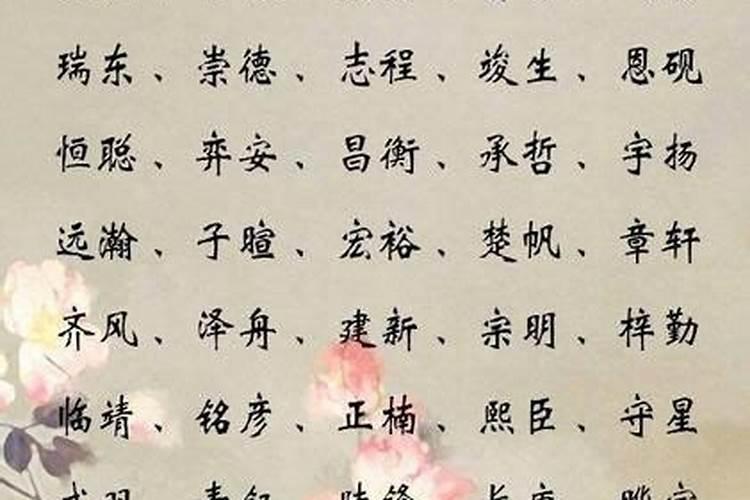 瑞东、崇德、志程、竣生、恩砚
恒聪、弈安、昌衡、承哲、宇扬
远瀚、子暄、宏裕、楚帆、章轩
齐风、泽舟、建新、宗明、梓勤
临靖、铭彦、正楠、熙臣、守星